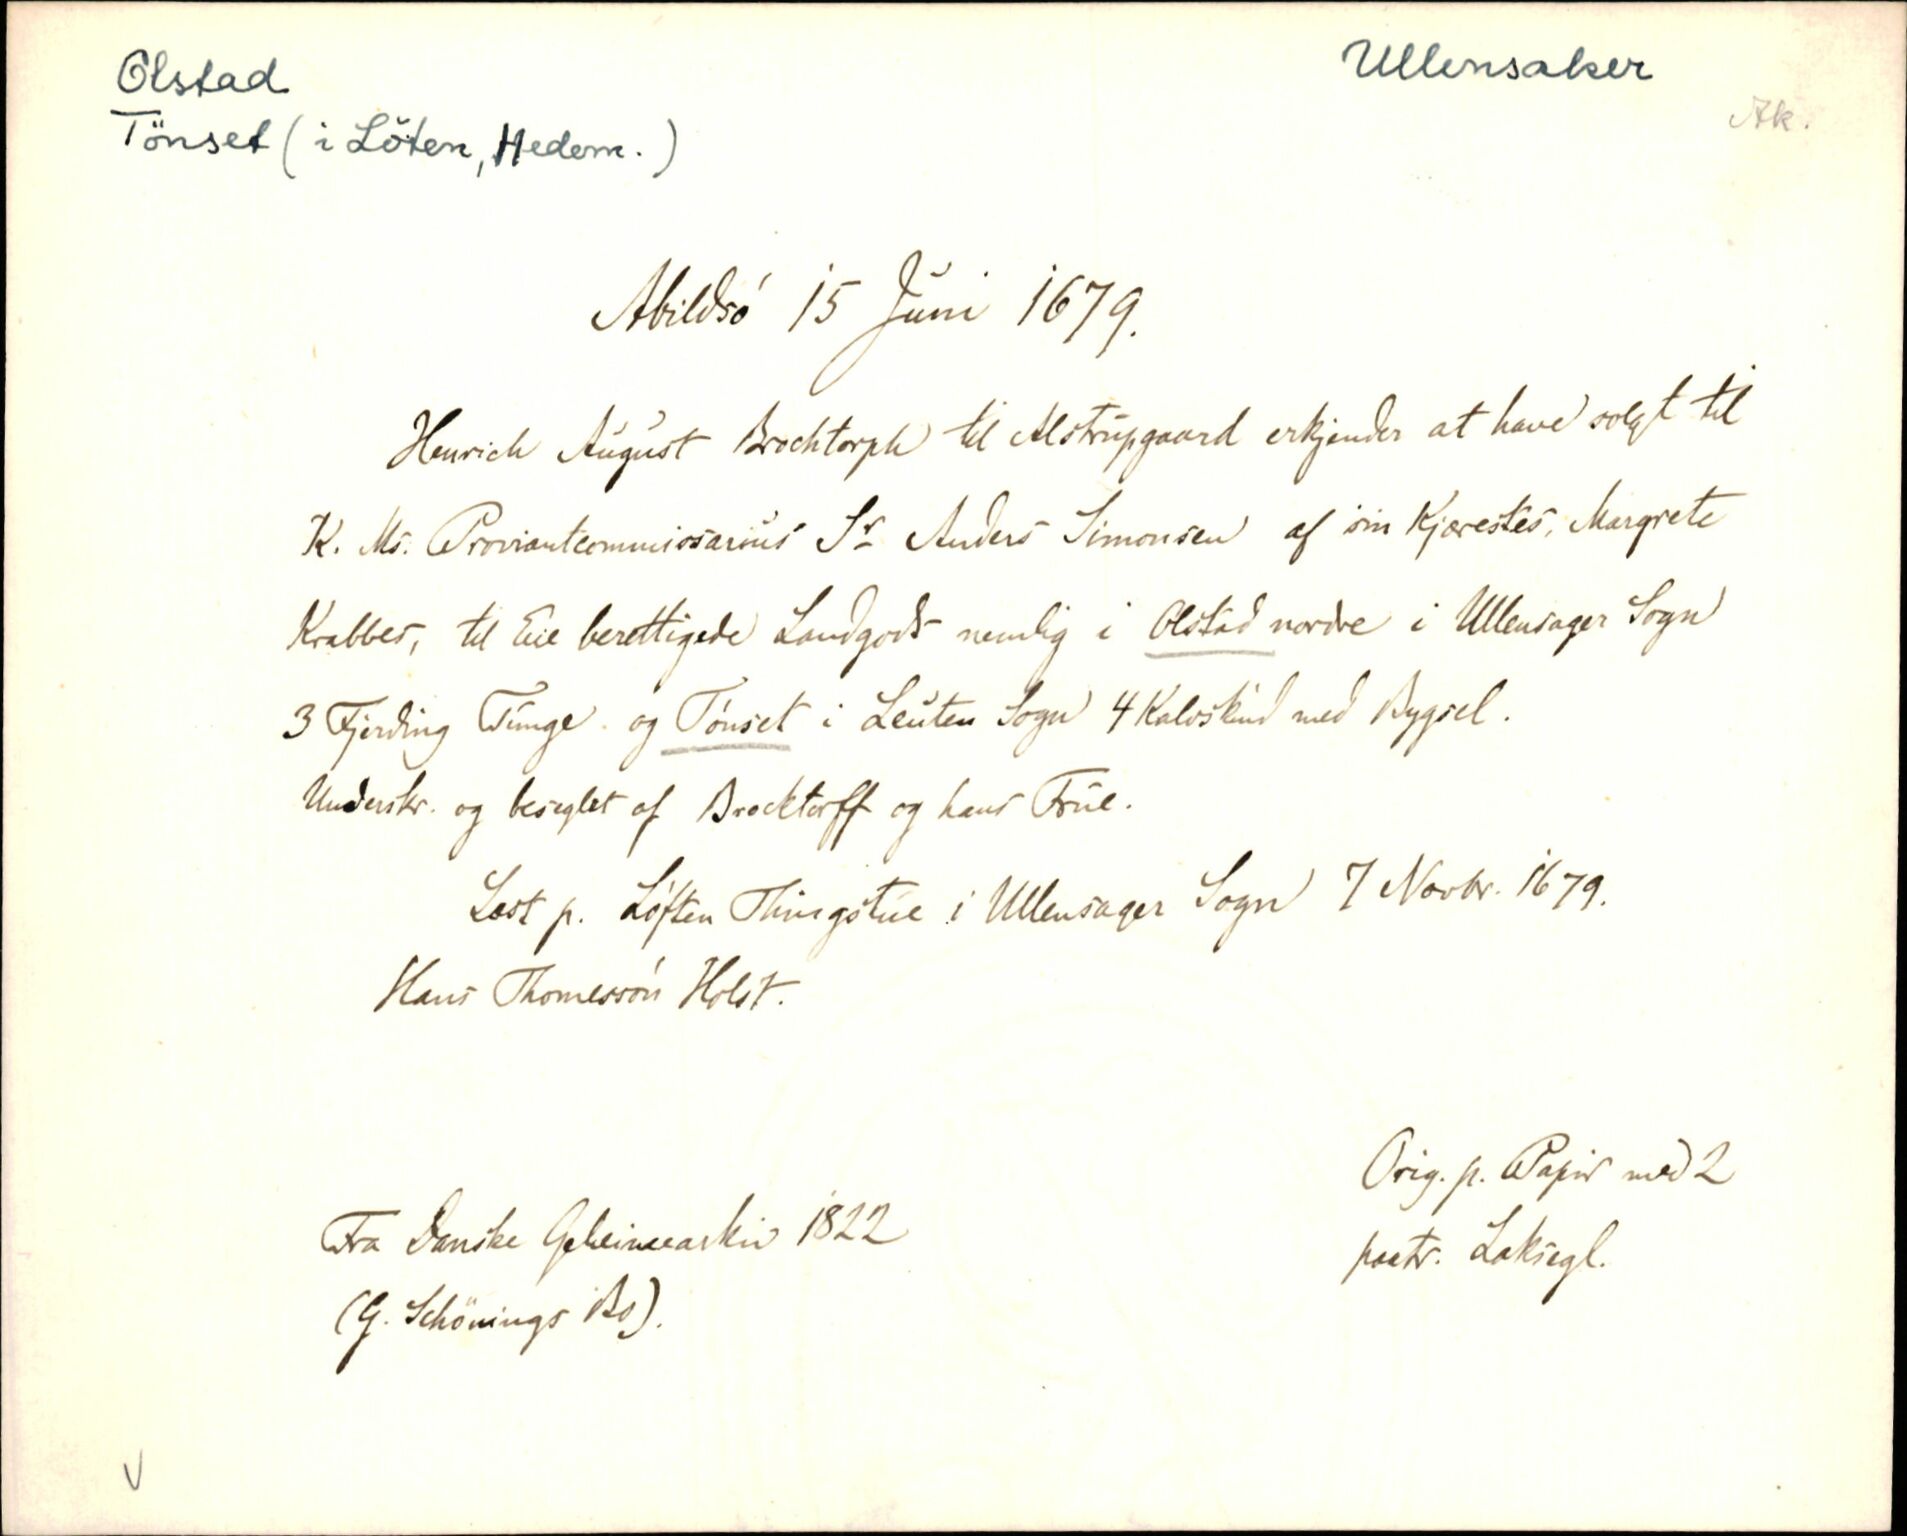 Olstad
Ullensaker
Tönset (i Löten, Hedem.)
Ak.
Abildsó 15 Juni 1679.
Henrich August Brochtorph til Alstrupgaard erkjender at have solgt til
K. Ms. Proviantcommissarius Sr Anders Simonsen af sin Kjærestes, Margrete
Krabbes, til Eie berettigede Landgods nemlig i Olstad nordre i Ullensager Sogn
3 Fjerding Tunge og Tónset i Leuten Sogn 4 Kalvskind med Bygsel.
Underskr. og beseglet af Brocktorff og hans Frue.
Læst p. Lóften Thingstue i Ullensager Sogn 7 Novbr. 1679.
Hans Thomessón Holst.
Orig. p. Papir med 2
paatr. Laksegl.
Fra Danske Geheimearkiv 1822
(G. Schönings Bo).
V